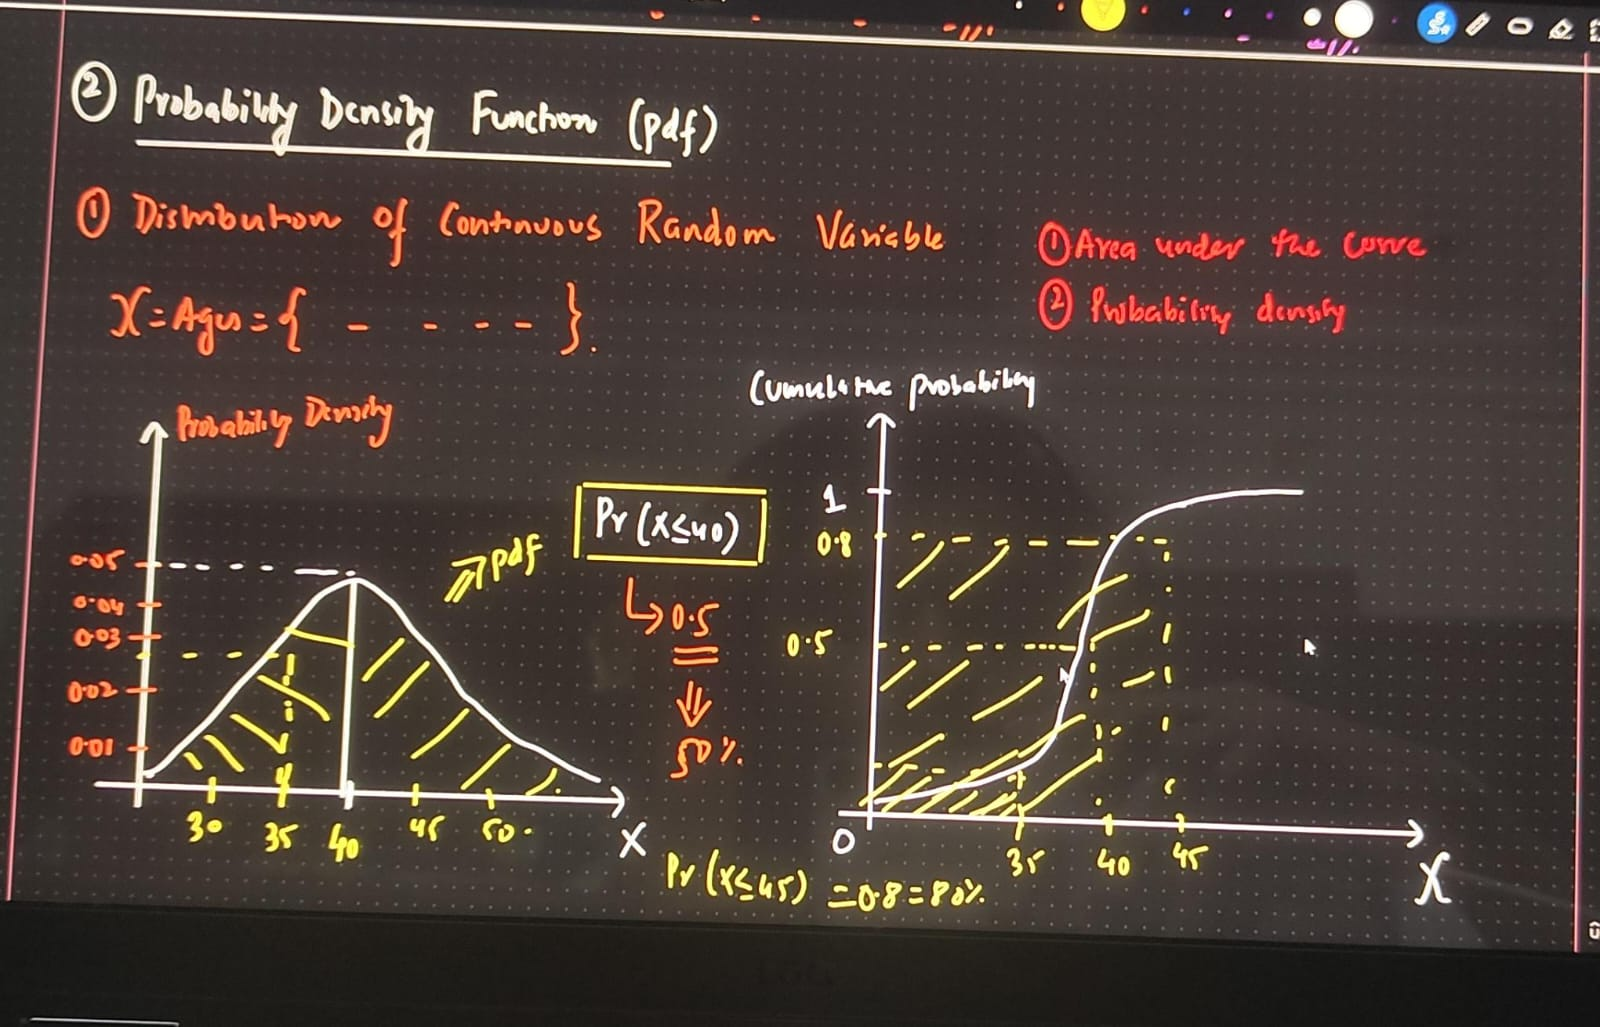 ② Probability Density Function (pdf)
① Distribution of Continuous Random Variable
X = Ages = { - - - - - }.
① Area under the curve
② Probability density
Probability Density
0.05
0.04
0.03
0.02
0.01
30 35 40 45 50.
X
pdf
Pr (X≤40)
↳ 0.5
⇓
50%.
Cumulative probability
1
0.8
0.5
0
35 40 45
X
Pr (X≤45) = 0.8 = 80%.